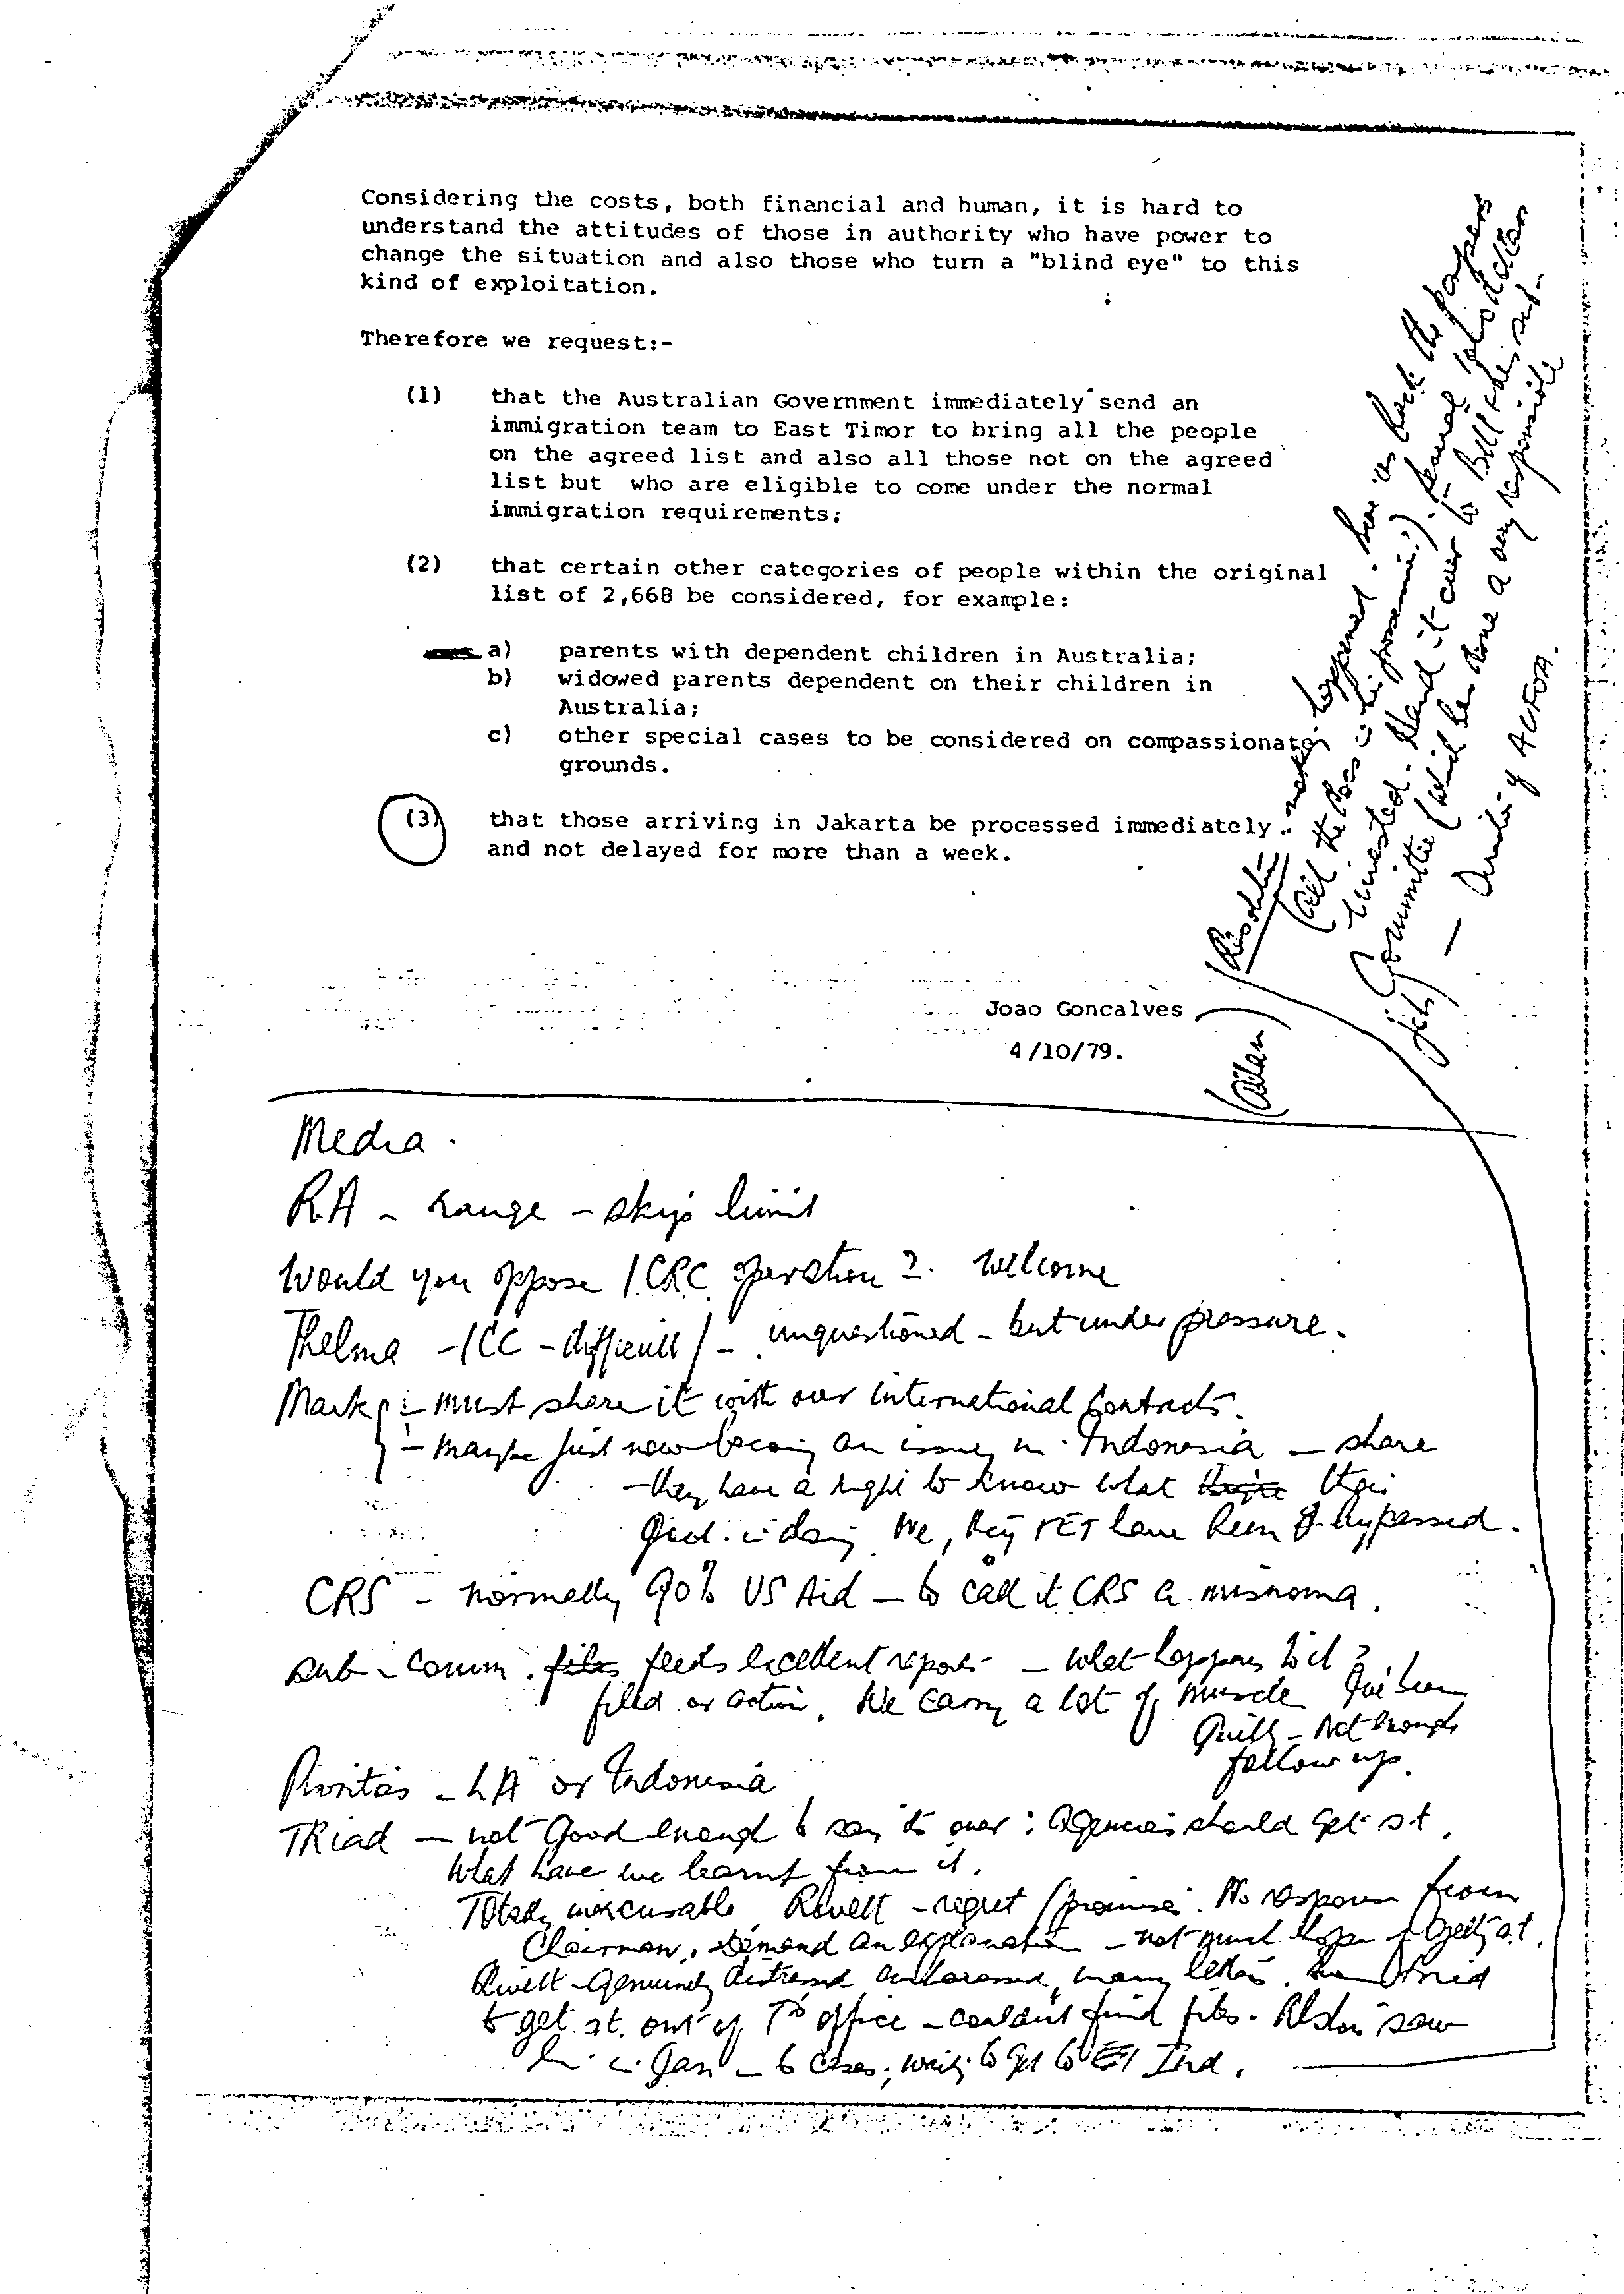 Considering the costs, both financial and human, it is hard to
understand the attitudes of those in authority who have power to
change the situation and also those who turn a "blind eye" to this
kind of exploitation.
Therefore we request:-
(1) that the Australian Government immediately send an
immigration team to East Timor to bring all the people
on the agreed list and also all those not on the agreed
list but who are eligible to come under the normal
immigration requirements;
(2) that certain other categories of people within the original
list of 2,668 be considered, for example:
a) parents with dependent children in Australia;
b) widowed parents dependent on their children in
Australia;
c) other special cases to be considered on compassionate
grounds.
(3) that those arriving in Jakarta be processed immediately
and not delayed for more than a week.
Joao Goncalves
4/10/79.
(Resolution not happened. the papers
(all the
Hand it over to Bill & his sub-
Committee (which has done a very responsible
job)
— ACFOA.
Media.
RA - range - sky's limit
Would you oppose ICRC operation? welcome
Thelma - ICC - difficult / - unquestioned - but under pressure.
Mark :- must share it with our international contacts.
- maybe just now becoming an issue in Indonesia — share
- they have a right to know what their
Govt. is doing. We, they & ET have been bypassed.
CRS - normally 90% US Aid — to call it CRS a misnoma.
sub-comm. feeds excellent reports — what happens to it?
filed or action. We carry a lot of muscle
Guilty - Not enough
follow up.
Priorities - LA or Indonesia
TRiad — not good enough to say it's over: agencies should get s.t.
What have we learnt from it.
Totally inexcusable. - regret / promise. No response from
Chairman. Demand an explanation - not much hope of getting s.t.
genuinely distressed embarrassed, many letters. tried
to get s.t. out of T's office - couldn't find files. saw
Jan - 6 cases; to get to Ind.